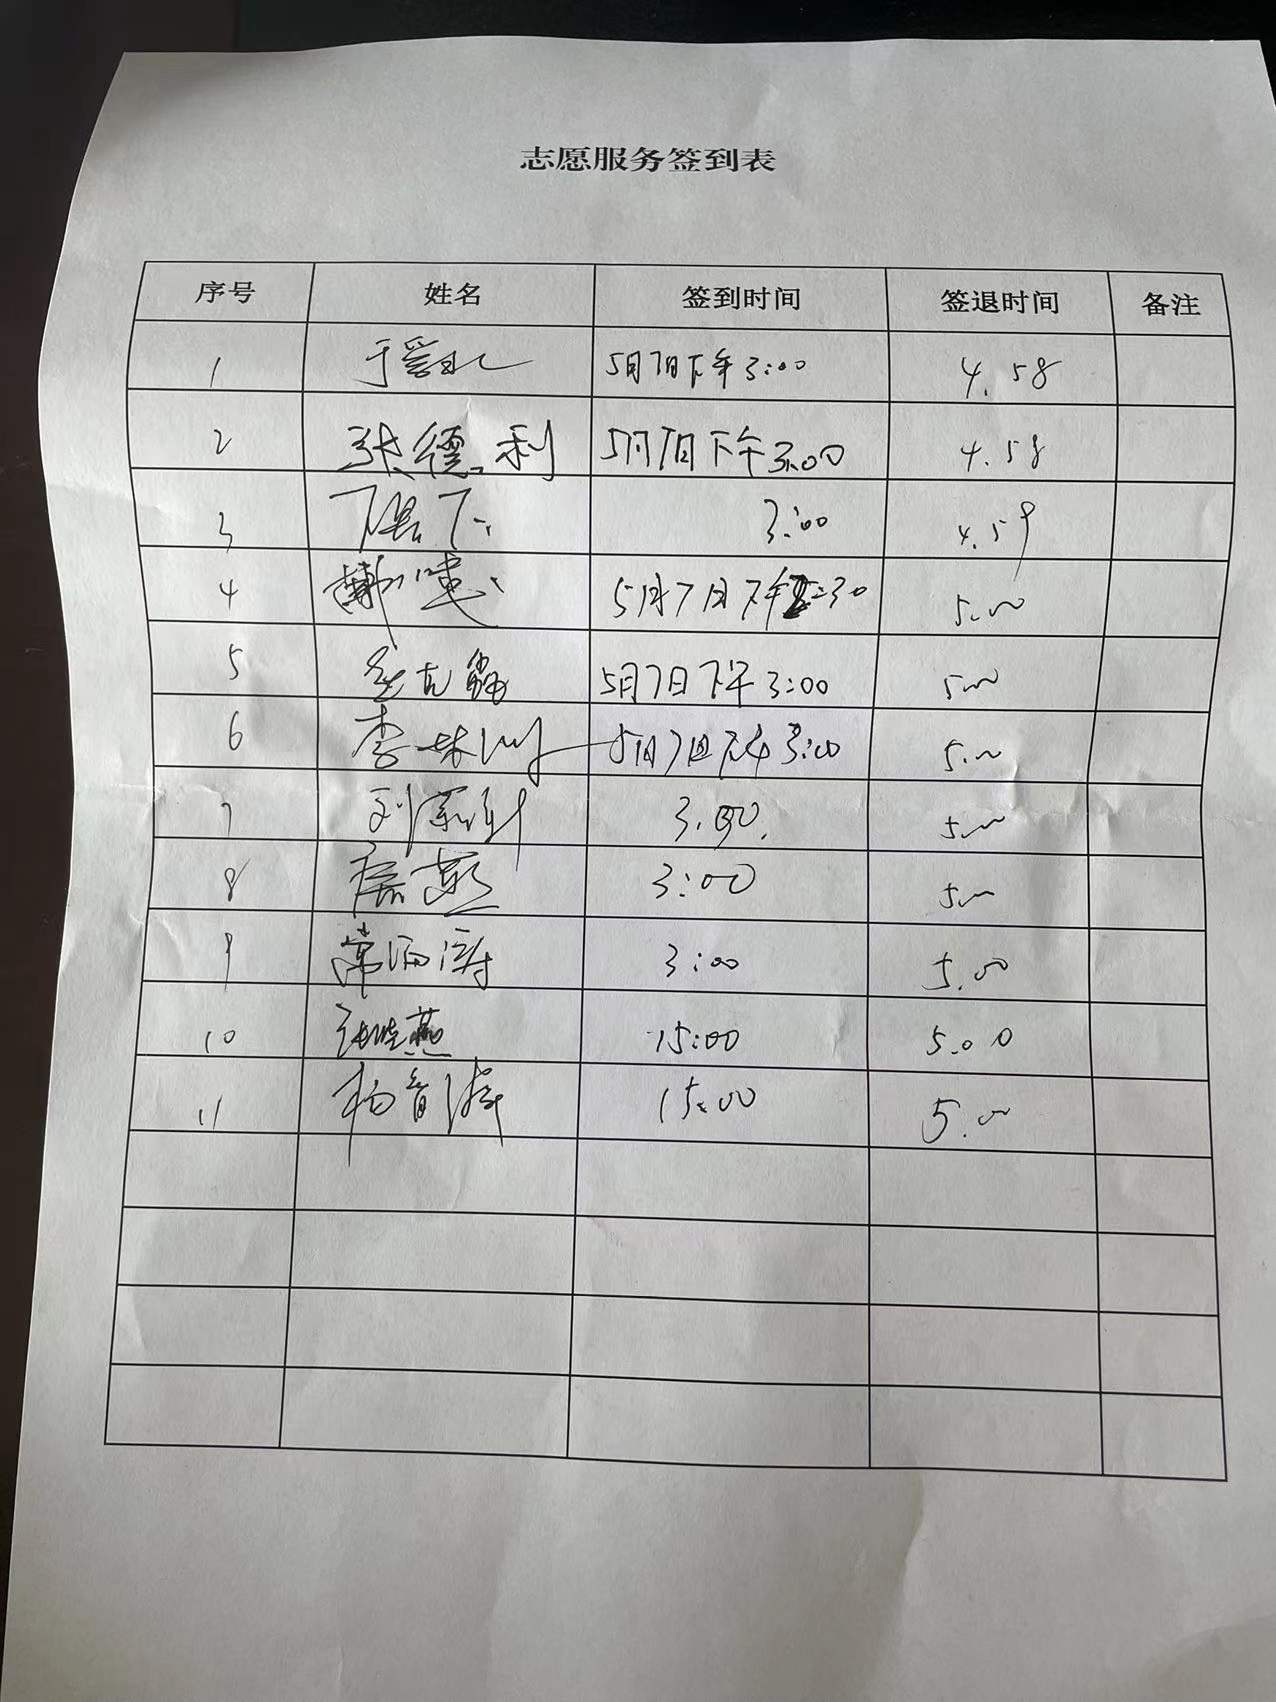 志愿服务签到表
序号 姓名 签到时间 签退时间 备注
1 于 5月7日下午3:00 4.58
2 张德利 5月7日下午3:00 4.58
3 3:00 4.59
4 5月7日下午 :30 5.00
5 5月7日下午3:00 5.00
6 李 5月7日下午3:00 5.00
7 刘 3.00. 5.00
8 燕 3:00 5.00
9 常 涛 3:00 5.00
10 张晓燕 15:00 5.00
11 杨 15:00 5.00